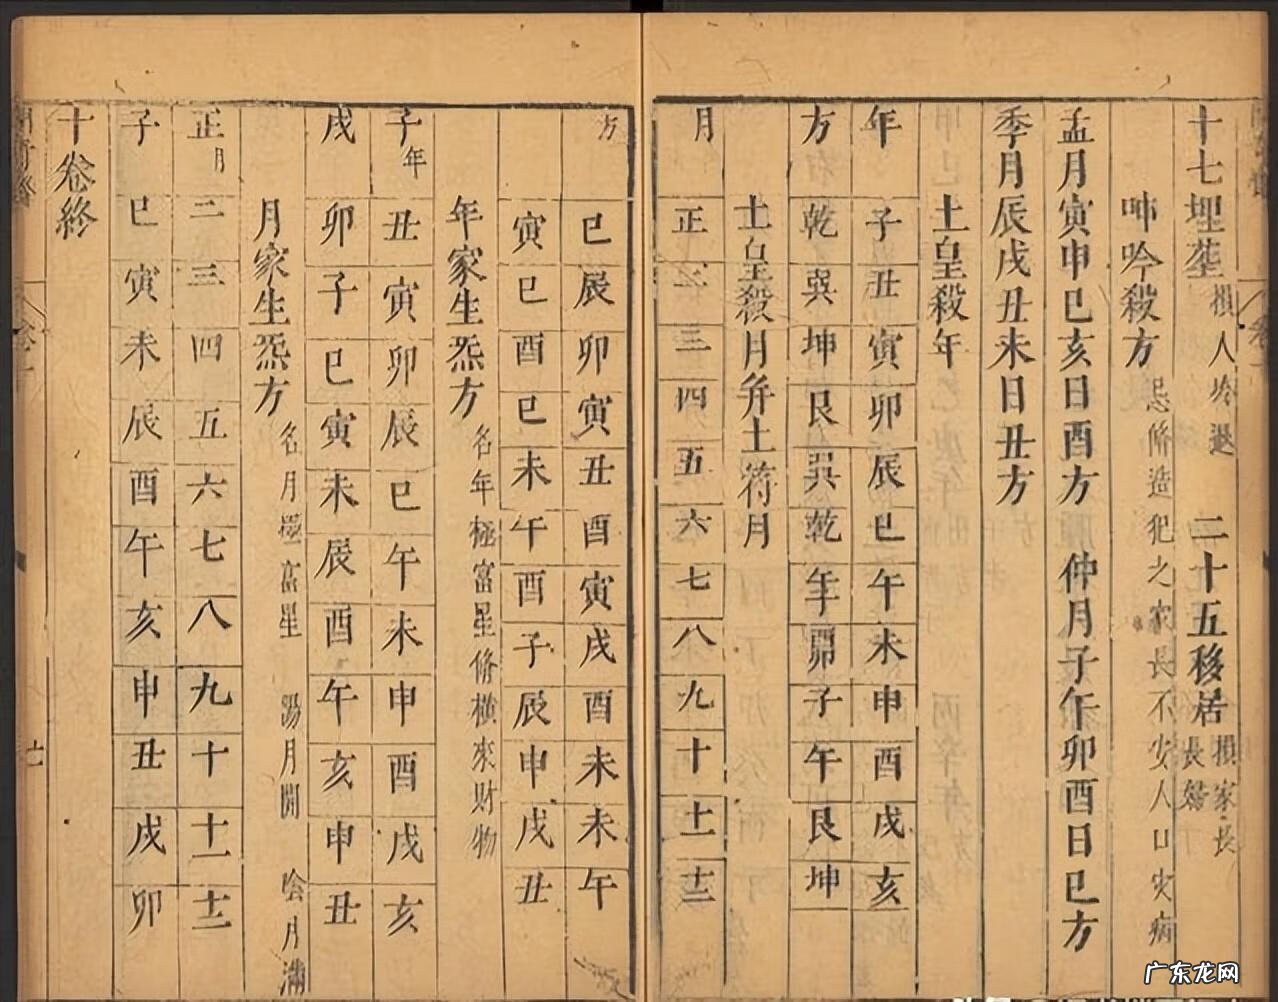 十七埋葬 損人冷退 二十五移居 損家長 長婦
呻吟殺方 忌脩造犯之家長不少人口灾病
孟月寅申巳亥日酉方 仲月子午卯酉日巳方
季月辰戌丑未日丑方
土皇殺年
年 子丑寅卯辰巳午未申酉戌亥
方 乾巽坤艮巽乾午卯子午艮坤
土皇殺月并土符月
月 正二三四五六七八九十十一十二
方 巳辰卯寅丑酉寅戌酉未未午
寅巳酉巳未午酉子辰申戌丑
年家生炁方 名年極富星脩橫來財物
子年丑寅卯辰巳午未申酉戌亥
戌卯子巳寅未辰酉午亥申丑
月家生炁方 名月極富星 陽月開 陰月滿
正月二三四五六七八九十十一十二
子巳寅未辰酉午亥申丑戌卯
十卷終
廣东龙网